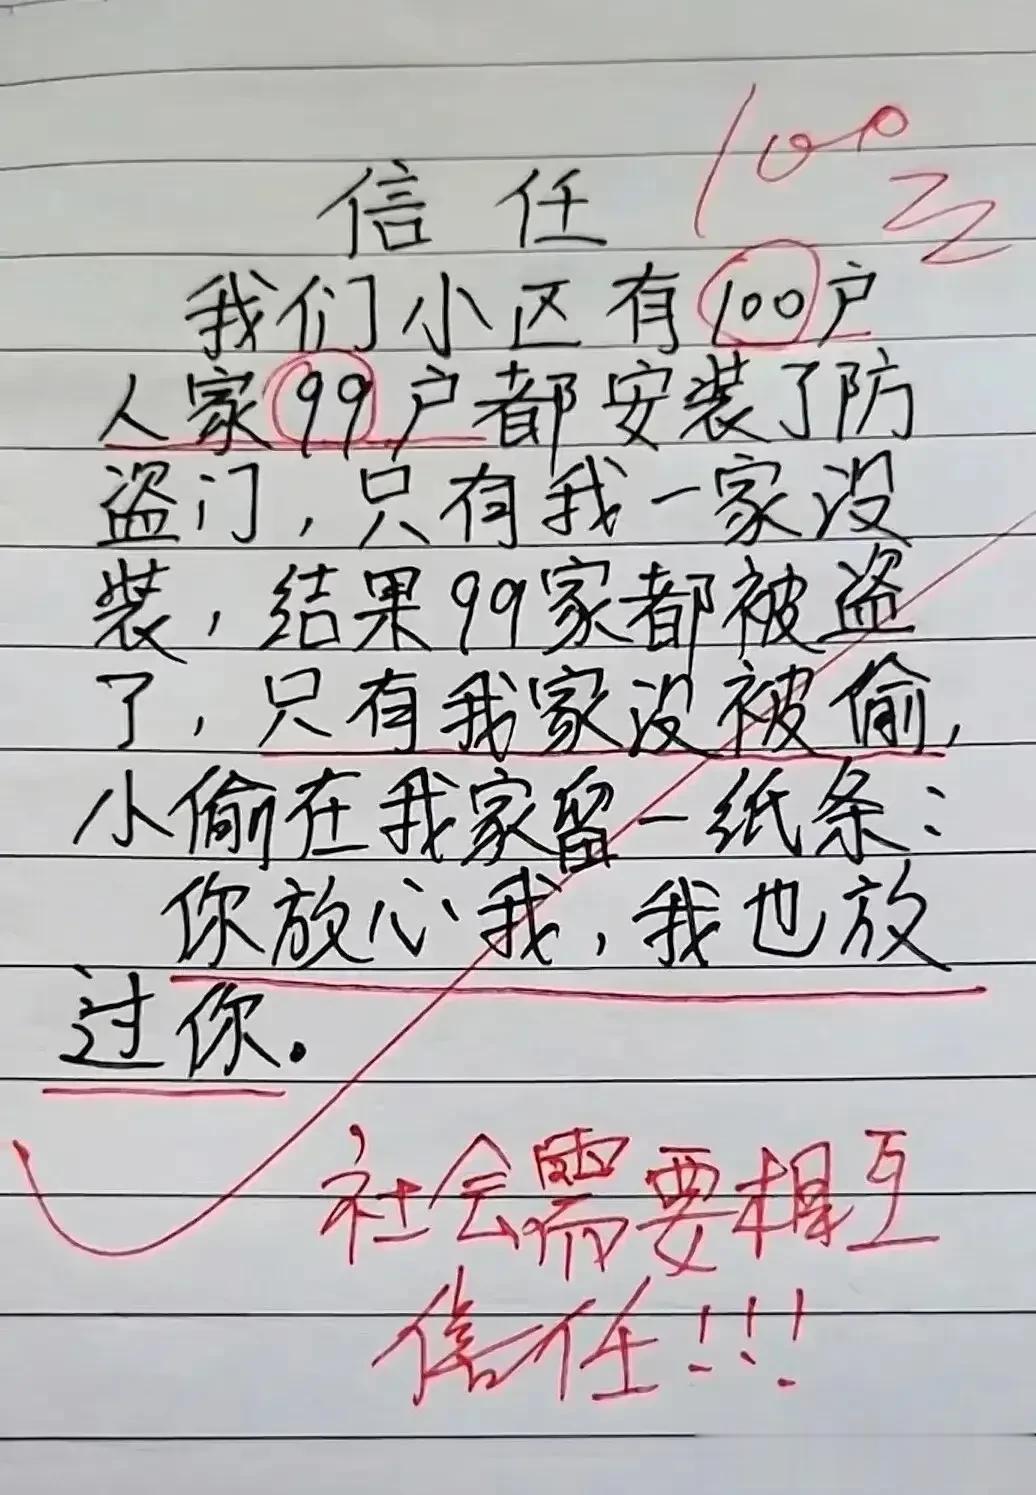 100
信任
我们小区有100户
人家99户都安装了防
盗门,只有我一家没
装,结果99家都被盗
了,只有我家没被偷,
小偷在我家留一纸条:
你放心我,我也放
过你.
社会需要相互
信任!!!